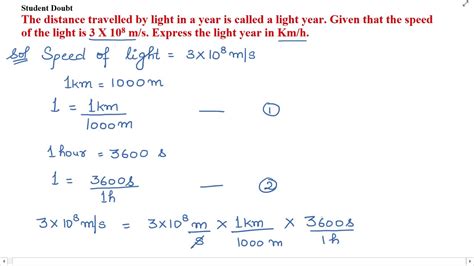 Student Doubt
The distance travelled by light in a year is called a light year. Given that the speed
of the light is 3 X 10⁸ m/s. Express the light year in Km/h.
Sol Speed of light = 3×10⁸ m/s
1km = 1000m
1 = 1km/1000m — ①
1 hour = 3600 s
1 = 3600s/1h — ②
3×10⁸ m/s = 3×10⁸ m/s × 1km/1000 m × 3600s/1h